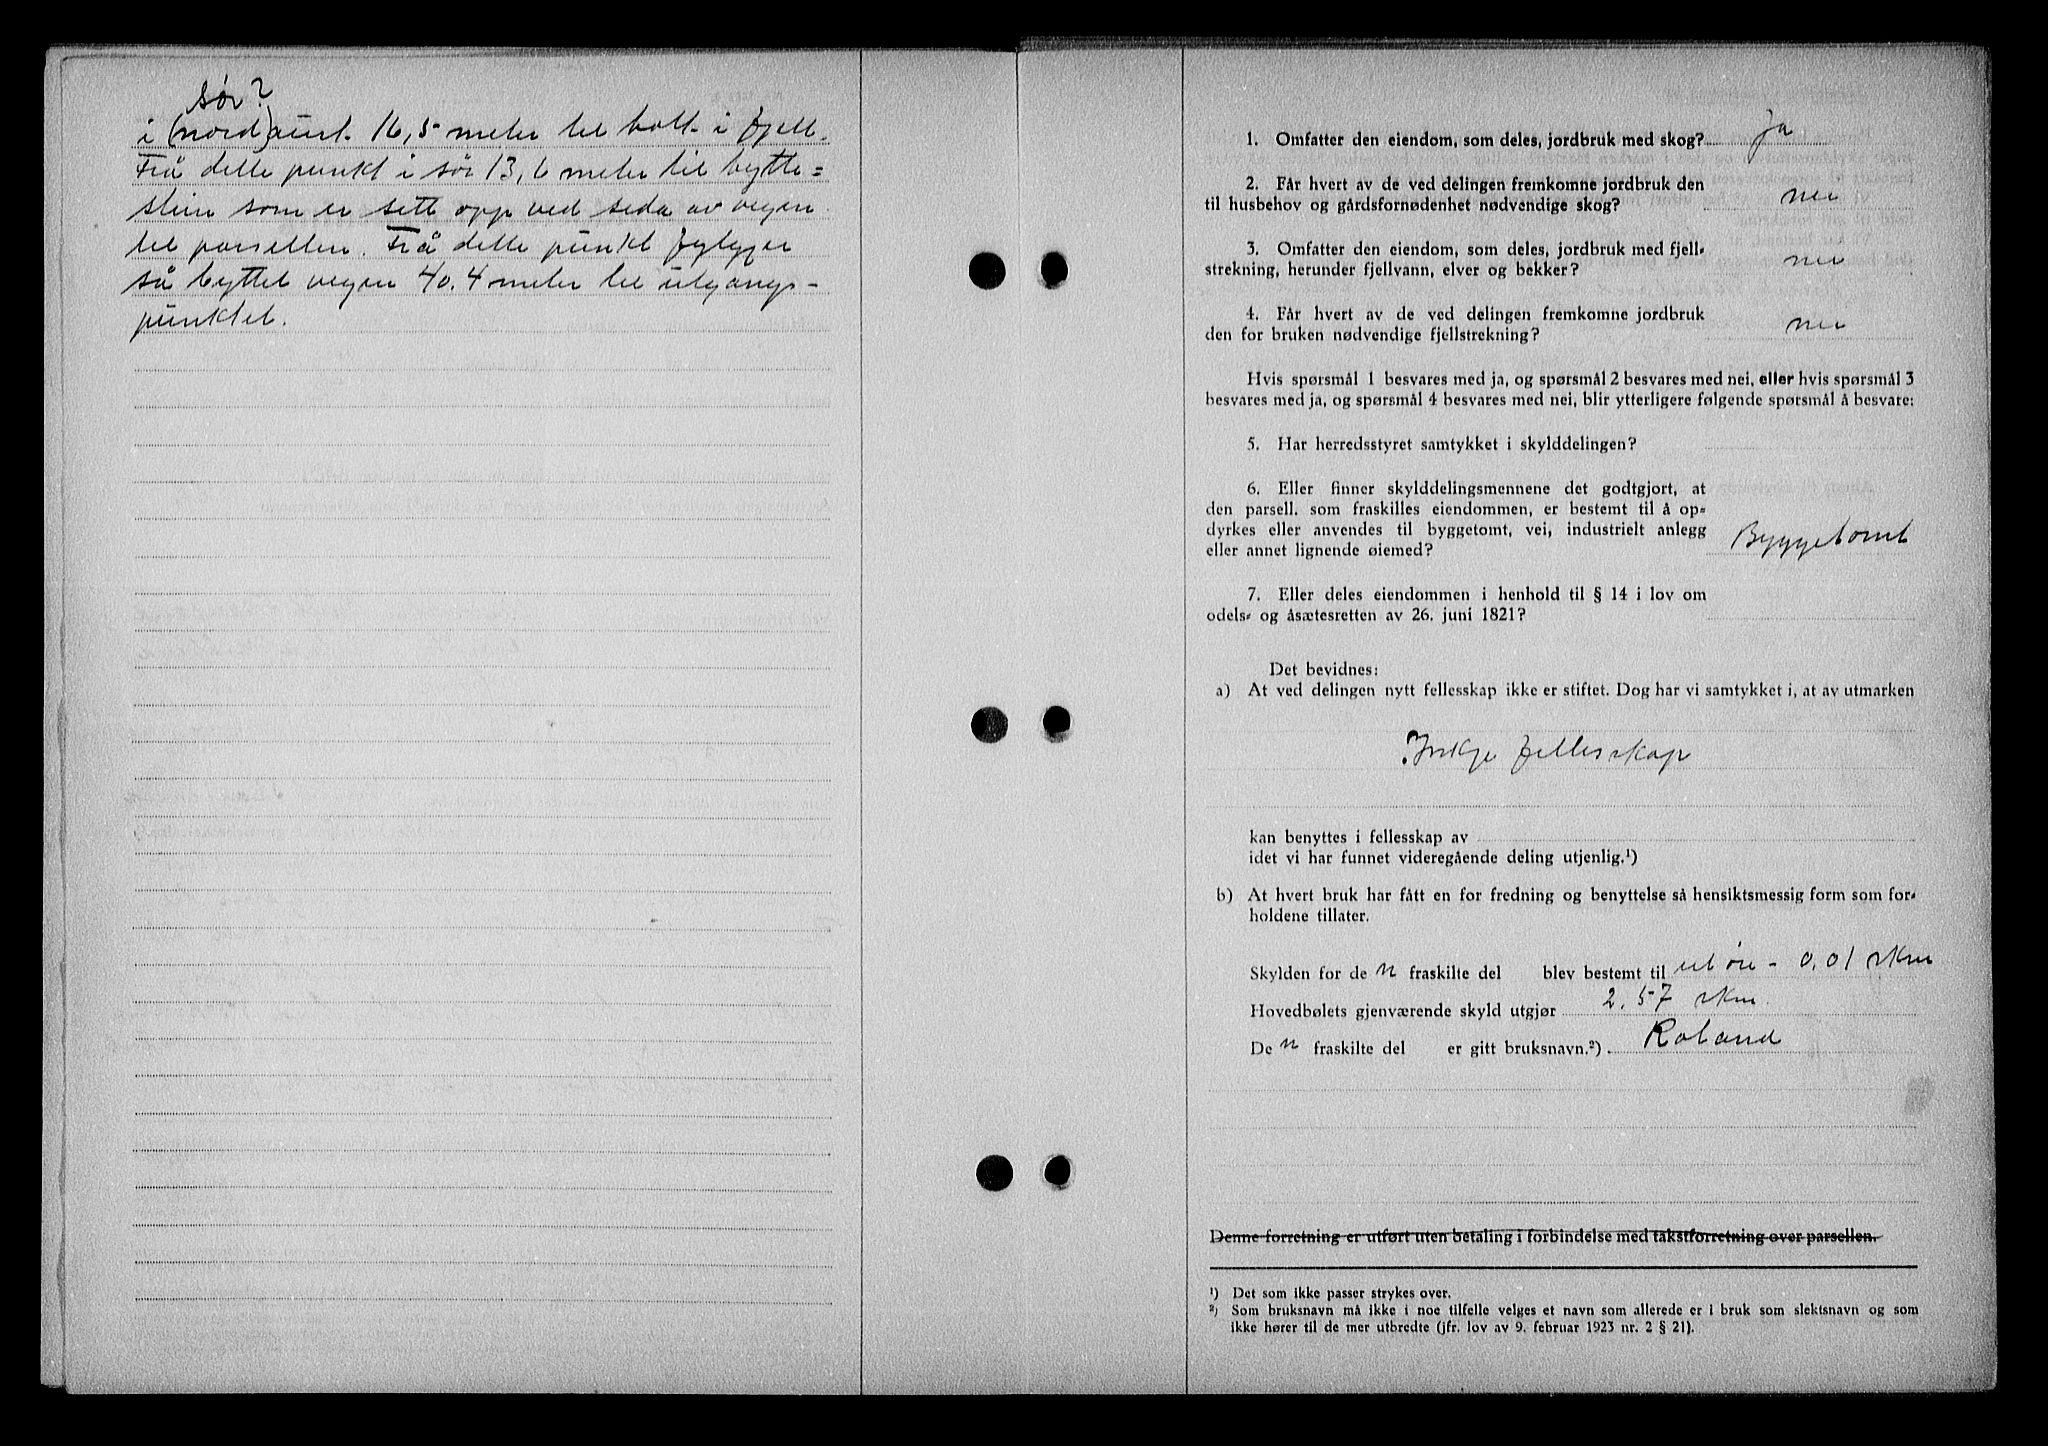 sør?
i (nord)aust 16,5 meter til bolt i fjell.
Frå dette punkt i sør 13,6 meter til bytte=
stein som er sett opp ved sida av vegen
til parsellen. Frå dette punkt fylgjer
så byttet vegen 40.4 meter til utgangs-
punktet.
1. Omfatter den eiendom, som deles, jordbruk med skog? ja
2. Får hvert av de ved delingen fremkomne jordbruk den
til husbehov og gårdsfornødenhet nødvendige skog? nei
3. Omfatter den eiendom, som deles, jordbruk med fjell-
strekning, herunder fjellvann, elver og bekker? nei
4. Får hvert av de ved delingen fremkomne jordbruk
den for bruken nødvendige fjellstrekning? nei
Hvis spørsmål 1 besvares med ja, og spørsmål 2 besvares med nei, eller hvis spørsmål 3
besvares med ja, og spørsmål 4 besvares med nei, blir ytterligere følgende spørsmål å besvare:
5. Har herredsstyret samtykket i skylddelingen?
6. Eller finner skylddelingsmennene det godtgjort, at
den parsell, som fraskilles eiendommen, er bestemt til å op-
dyrkes eller anvendes til byggetomt, vei, industrielt anlegg
eller annet lignende øiemed? Byggetomt
7. Eller deles eiendommen i henhold til § 14 i lov om
odels- og åsætesretten av 26. juni 1821?
Det bevidnes:
a) At ved delingen nytt fellesskap ikke er stiftet. Dog har vi samtykket i, at av utmarken
Inkje fellesskap
kan benyttes i fellesskap av
idet vi har funnet videregående deling utjenlig.¹)
b) At hvert bruk har fått en for fredning og benyttelse så hensiktsmessig form som for-
holdene tillater.
Skylden for de n fraskilte del blev bestemt til eit øre - 0,01 skm
Hovedbølets gjenværende skyld utgjør 2.57 skm.
De n fraskilte del er gitt bruksnavn.²) Roland
Denne forretning er utført uten betaling i forbindelse med takstforretning over parsellen.
¹) Det som ikke passer strykes over.
²) Som bruksnavn må ikke i noe tilfelle velges et navn som allerede er i bruk som slektsnavn og som
ikke hører til de mer utbredte (jfr. lov av 9. februar 1923 nr. 2 § 21).